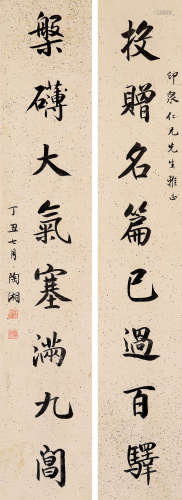 印泉仁兄先生雅正
投贈名篇已過百驛
槃礴大氣塞滿九閶
丁丑七月 陶湘